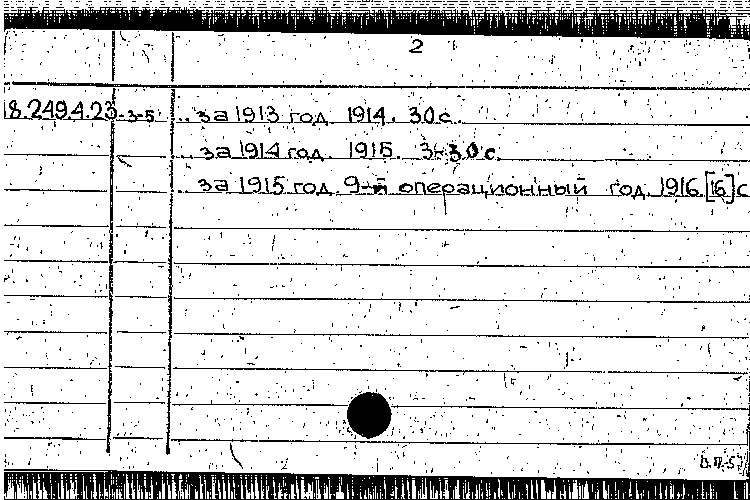 2
18.249.4.23-3-5 ..за 1913 год. 1914. 30с.
..за 1914 год. 1915. 3-30с.
..за 1915 год. 9-й операционный год. 1916. [16]с